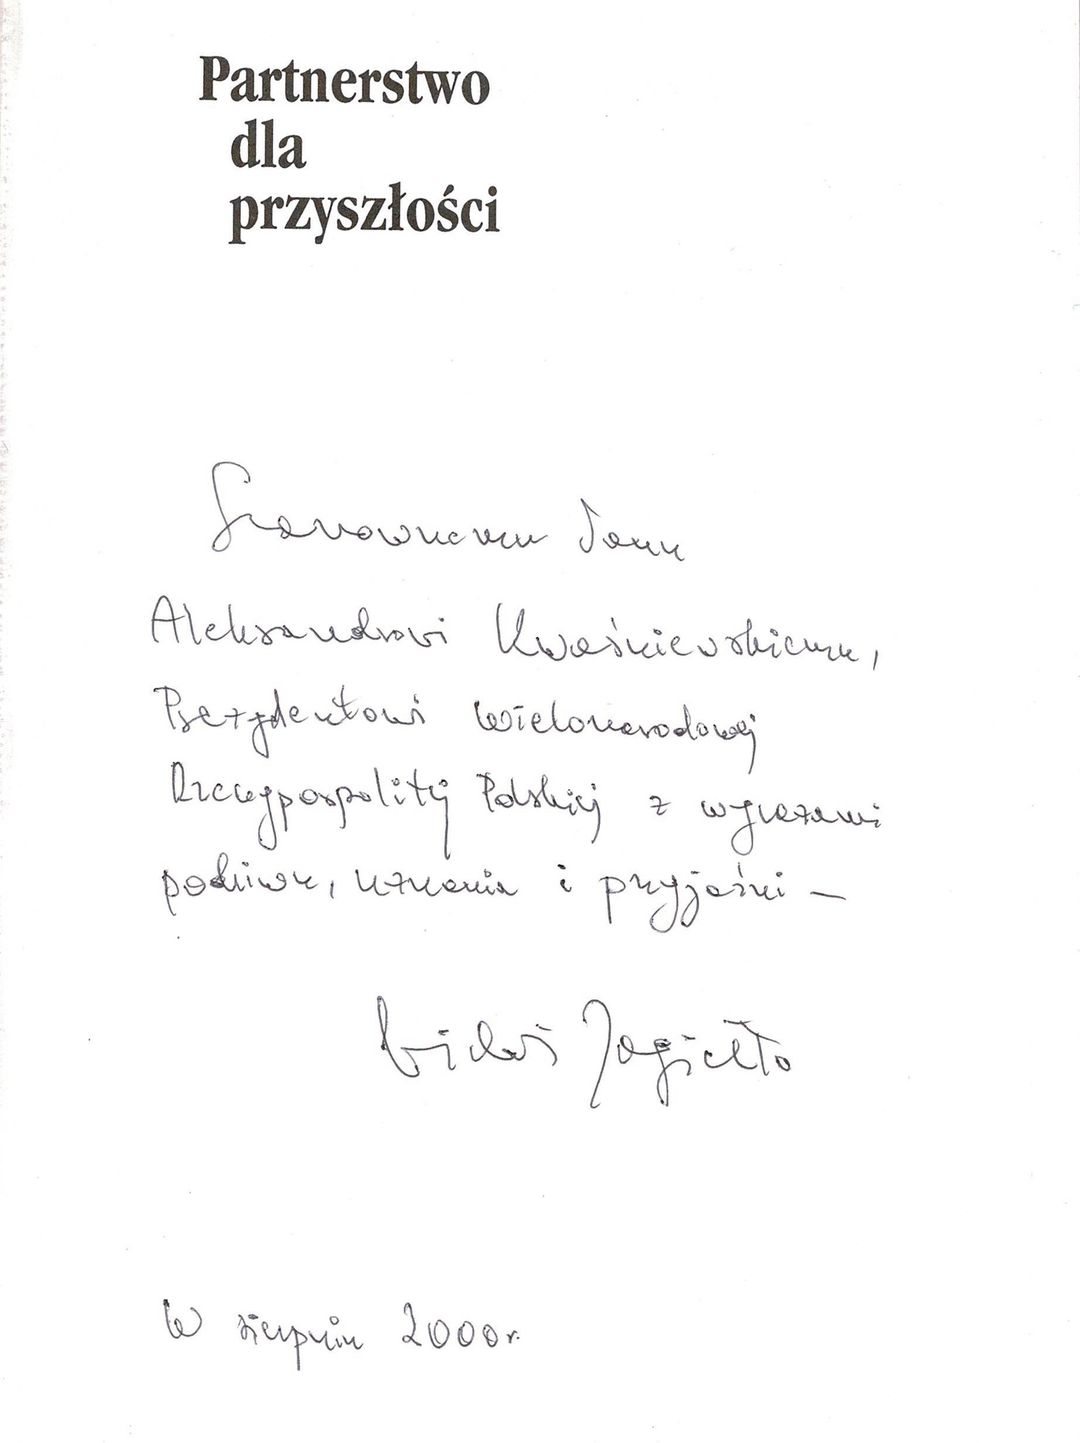 Partnerstwo
dla
przyszłości
Szanownemu Panu
Aleksandrowi Kwaśniewskiemu,
Prezydentowi Wielonarodowej
Rzeczypospolitej Polskiej z wyrazami
podziwu, uznania i przyjaźni –
Jagiełło
W sierpniu 2000 r.